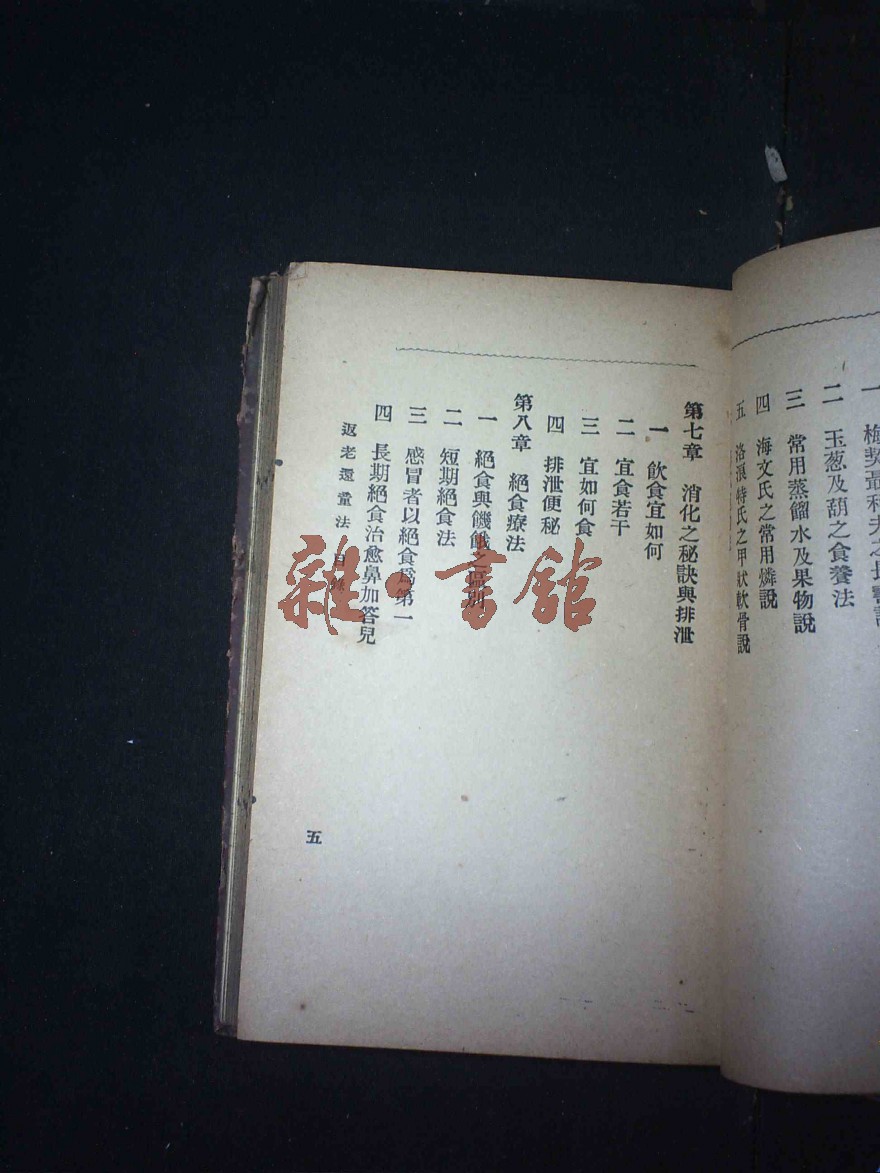 一
二 玉葱及葫之食養法
三 常用蒸餾水及果物說
四 海文氏之常用燐說
五 洛浪特氏之甲狀軟骨說
第七章 消化之秘訣與排泄
一 飲食宜如何
二 宜食若干
三 宜如何食
四 排泄便秘
第八章 絕食療法
一 絕食與饑餓之區別
二 短期絕食法
三 感冒者以絕食爲第一
四 長期絕食治愈鼻加答兒
返老還童法 目錄
五
雜·書館